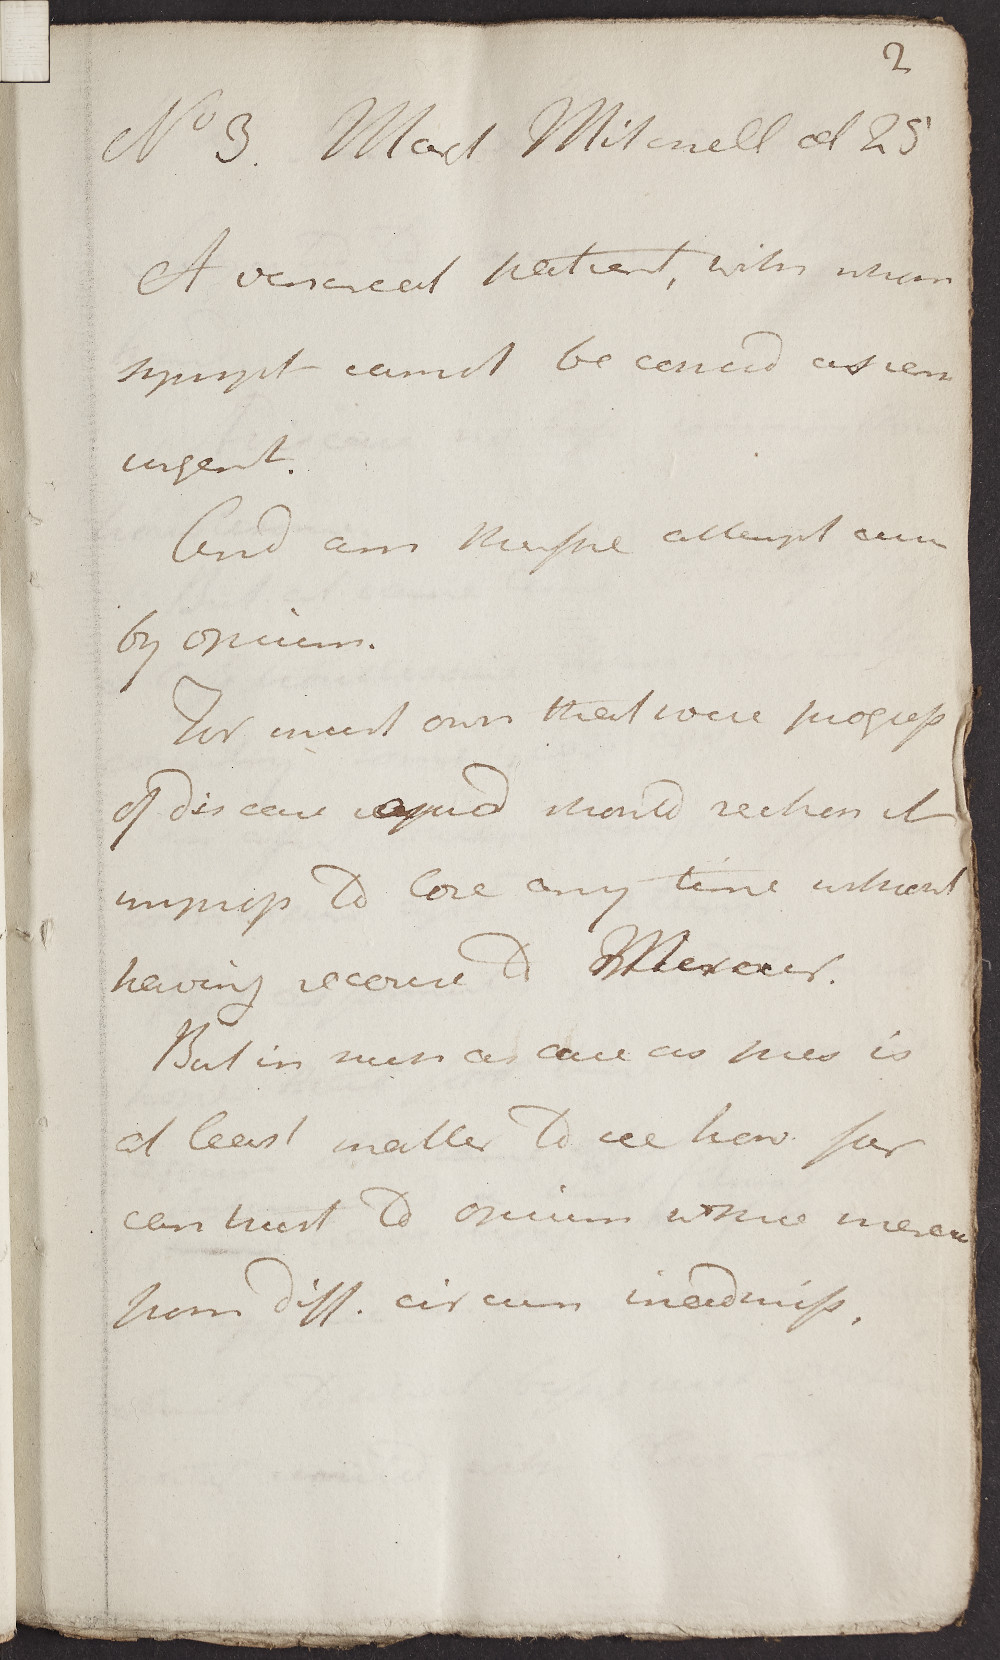 2
No 3. Mart Mitchell æt 25
A venereal patient, with whom
sympt cannot be consid as very
urgent.
And am therfre attempt cure
by opium.
For must own that were progress
of disease rapid should reckon it
improp to lose any time without
having recourse to Mercur.
But in such a case as pres is
at least matter to see how far
can trust to opium where mercu
from diff. circum inadmiss.